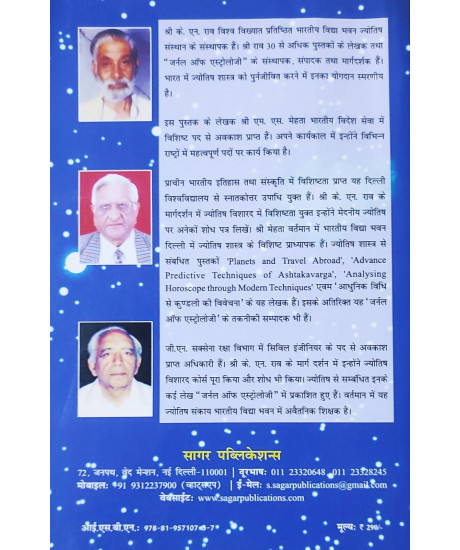 श्री के. एन. राव विश्व विख्यात प्रतिष्ठित भारतीय विद्या भवन ज्योतिष
संस्थान के संस्थापक हैं। श्री राव 30 से अधिक पुस्तकों के लेखक तथा
“जर्नल ऑफ एस्ट्रोलोजी” के संस्थापक, संपादक तथा मार्गदर्शक हैं।
भारत में ज्योतिष शास्त्र को पुनर्जीवित करने में इनका योगदान स्मरणीय
है।
इस पुस्तक के लेखक श्री एम. एस. मेहता भारतीय विदेश सेवा में
विशिष्ट पद से अवकाश प्राप्त हैं। अपने कार्यकाल में इन्होंने विभिन्न
राष्ट्रों में महत्वपूर्ण पदों पर कार्य किया है।
प्राचीन भारतीय इतिहास तथा संस्कृति में विशिष्टता प्राप्त यह दिल्ली
विश्वविद्यालय से स्नातकोत्तर उपाधि युक्त हैं। श्री के. एन. राव के
मार्गदर्शन में ज्योतिष विशारद में विशिष्टता युक्त इन्होंने मेदनीय ज्योतिष
पर अनेकों शोध पत्र लिखें। श्री मेहता वर्तमान में भारतीय विद्या भवन
दिल्ली में ज्योतिष शास्त्र के विशिष्ट प्राध्यापक हैं। ज्योतिष शास्त्र से
संबधित पुस्तकों 'Planets and Travel Abroad', 'Advance
Predictive Techniques of Ashtakavarga', 'Analysing
Horoscope through Modern Techniques' एवम 'आधुनिक विधि
से कुण्डली की विवेचना' के यह लेखक हैं। इसके अतिरिक्त यह “जर्नल
ऑफ एस्ट्रोलोजी” के तकनीकी सम्पादक भी हैं।
जी.एन. सक्सेना रक्षा विभाग में सिविल इंजीनियर के पद से अवकाश
प्राप्त अधिकारी हैं। श्री के. एन. राव के मार्ग दर्शन में इन्होंने ज्योतिष
विशारद कोर्स पूरा किया और शोध भी किया। ज्योतिष से सम्बंधित इनके
कई लेख “जर्नल ऑफ एस्ट्रोलोजी” में प्रकाशित हुए हैं। वर्तमान में यह
ज्योतिष संकाय भारतीय विद्या भवन में अवैतनिक शिक्षक है।
सागर पब्लिकेशन्स
72, जनपथ, वेद मेन्शन, नई दिल्ली-110001 | दूरभाष: 011 23320648, 011 23328245
मोबाइल: 91 9312237900 (व्हाट्सएप) | ई-मेल: s.sagarpublications@gmail.com
वेबसाईट: www.sagarpublications.com
आई.एस.बी.एन.: 978-81-957107-3-7
मूल्य: ₹ 290/-